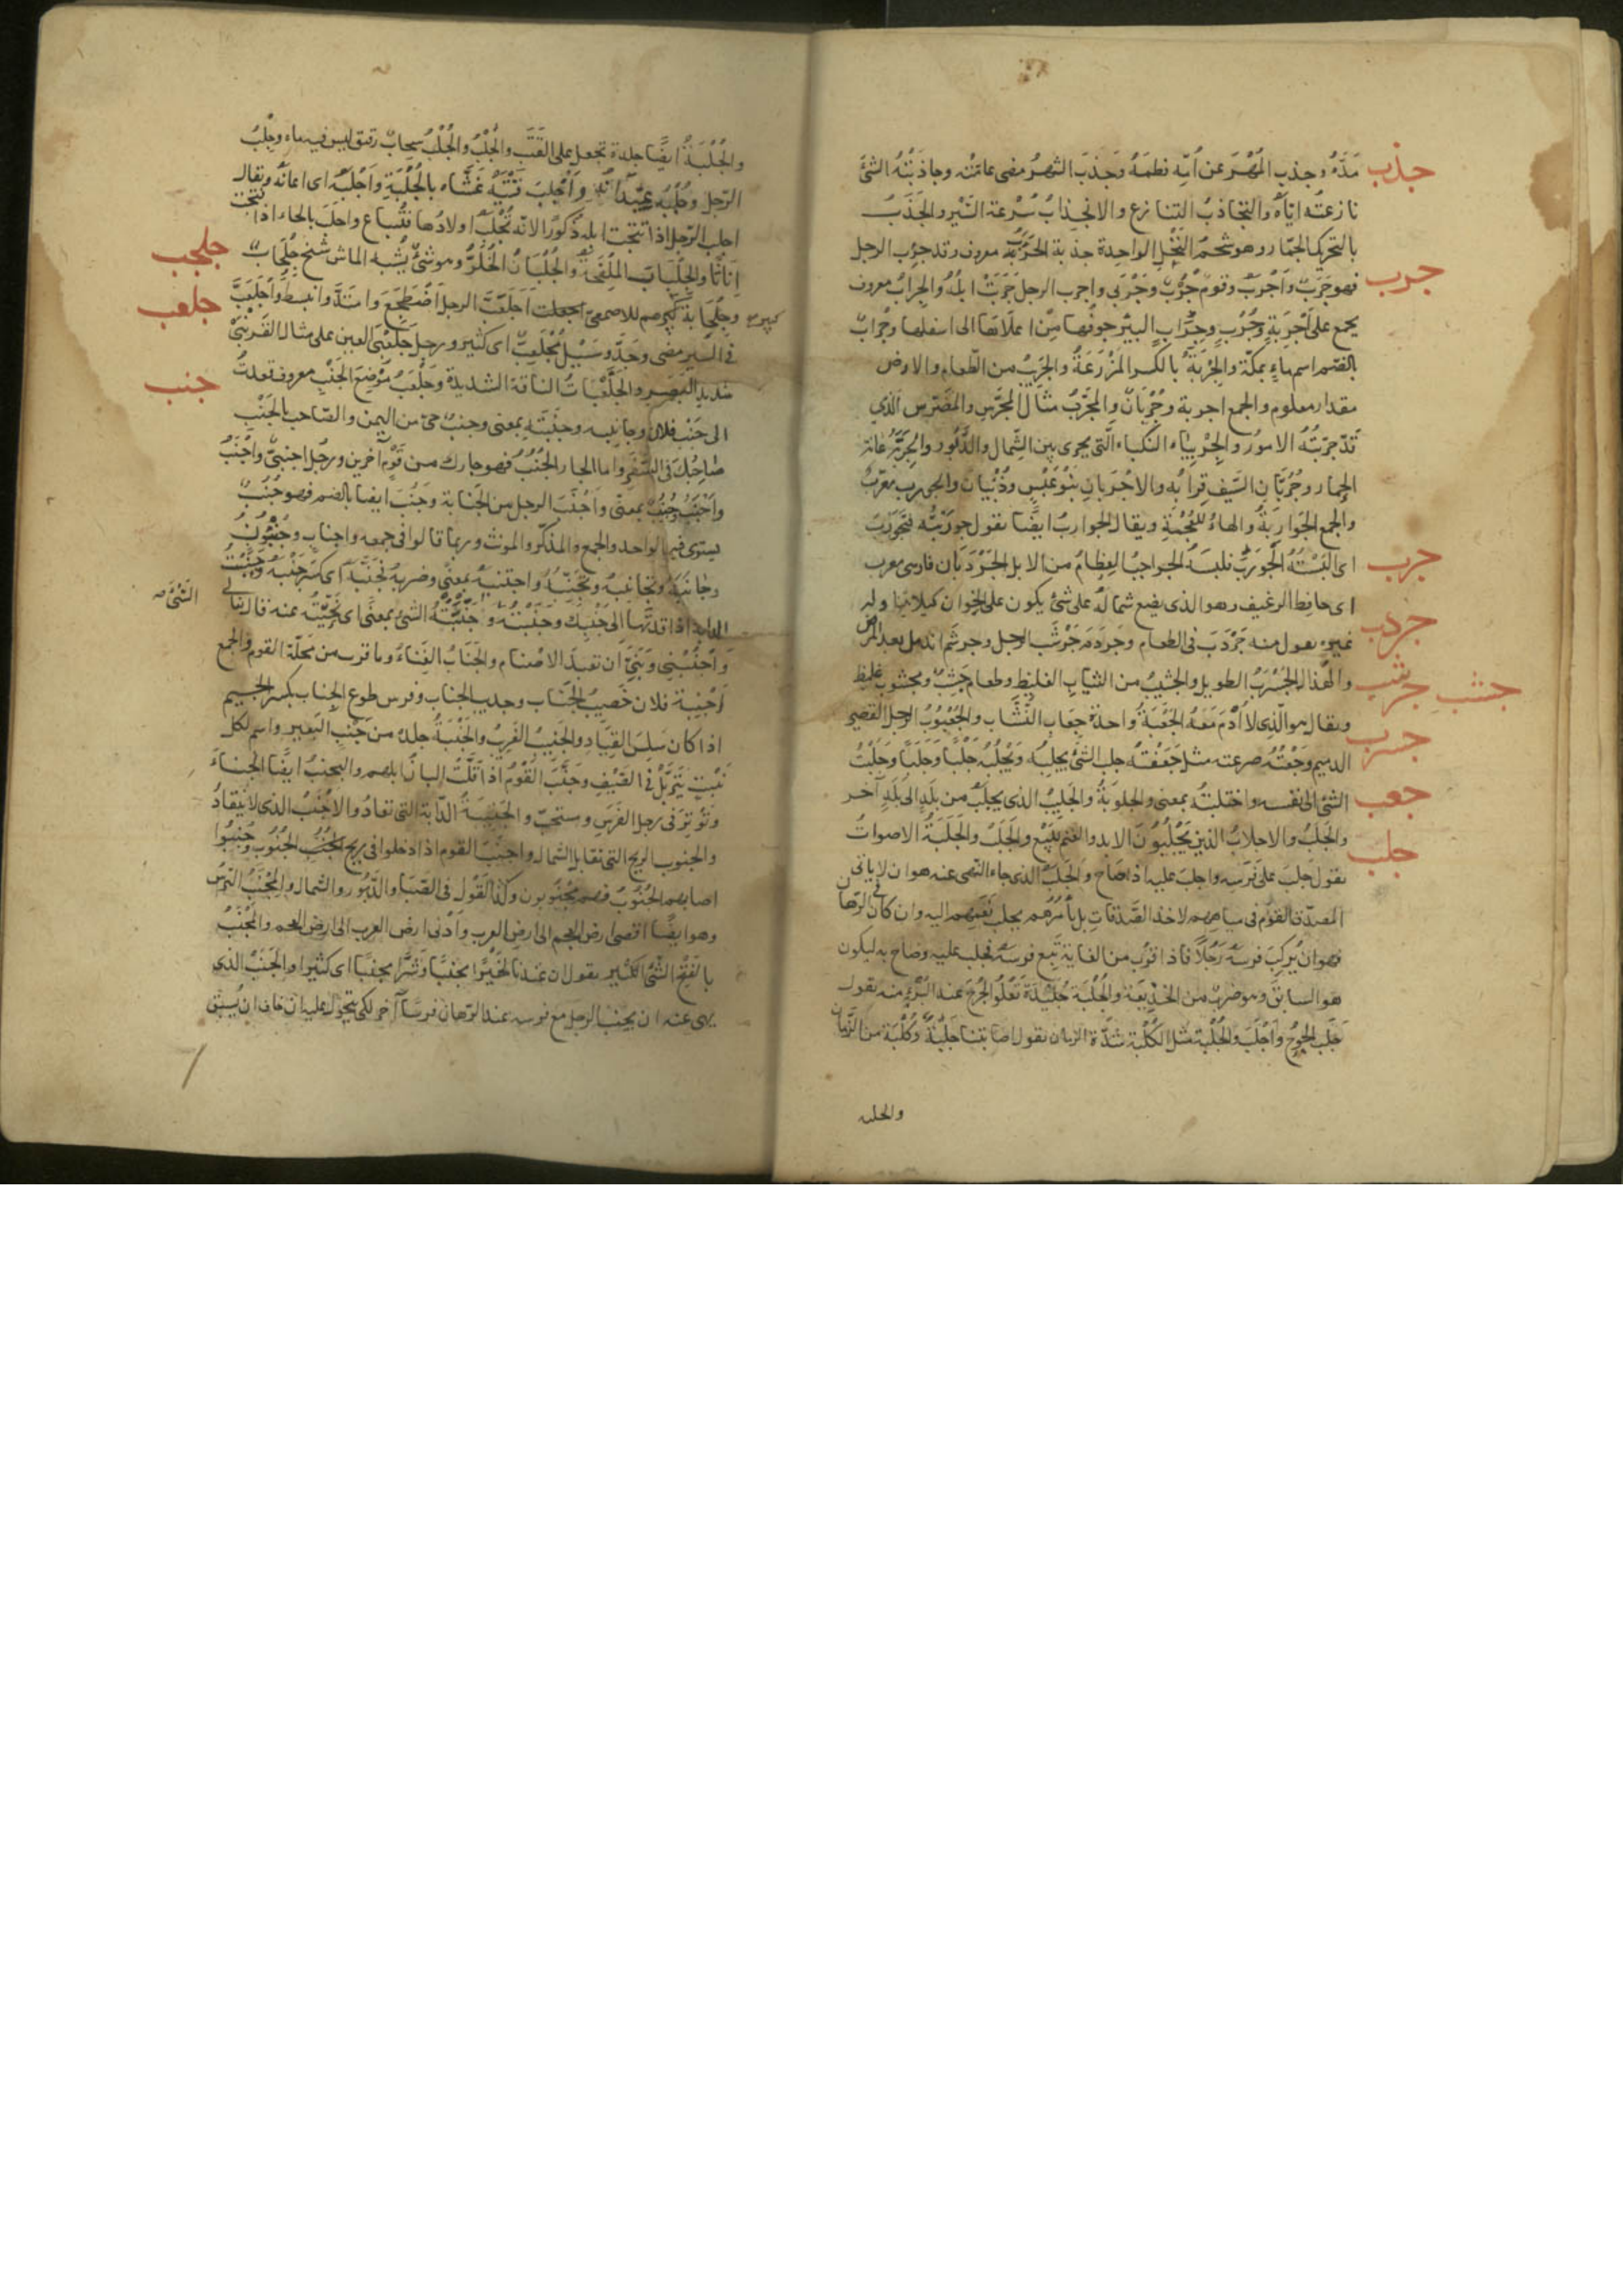 جذب
مَدَّهُ وجذب المُهْرَ عن اُمِّه فطمَهُ وجَذَبَ الشهرُ مضى عامّتُه وجاذَبْتُهُ الشئَ
نازعتُه ايّاه والتجاذبُ التنازع والانجذابُ سُرْعة السَّيْر والجَذَبُ
بالتحريك الجمّار وهو شحم النَّخْل الواحدة جذبة الجَرَبُ معروف وقد جَرِب الرجل
جرب
فهو جَرِبٌ واَجْرَبُ وقومٌ جُرْبٌ وجَرْبى واجرب الرجل جَرِبَتْ ابلُهُ والجِرابُ معروف
يجمع على اَجْرِبَةٍ وجُرْبٍ وجِرابُ البِئْرِ جوفُها مِنْ اعلاها الى اسفلها وجُرابٌ
بالضّم اسم ماءٍ بمكّة والجِرْبَةُ بالكسر المَزْرَعَةُ والجَرِيبُ من الطّعام والارض
مقدار معلوم والجمع اجربة وجُرْبَانٌ والمجَرَّبُ مثال المُجَرَّسِ والمُضَرَّسِ الّذي
قد جرّبَتْهُ الامُورُ والجِرْبِيَاءُ النكباءُ الّتى تجرى بين الشّمال والدَّبُور والجَرَبَّةُ عانة
الحِمار وجُرُبَّانِ السَّيفِ قِرابُه والاجْرَبانِ بَنُو عَبْسٍ وذُبْيَانَ والجورب معرّبٌ
والجمع الجَوَارِبَةُ والهاءُ للعُجْمَةِ ويقال الجواربُ ايضًا تقول جورَبْتُه فتَجَوْرَبَ
اى اَلبَسْتُهُ الجَوْرَبَ فلبسَهُ الجراجبُ العِظَامُ من الابل الجَرْدَبَان فارسى معرب
جرب
اى حافظ الرغيف وهو الذى يضع شماله على شئ يكون على الخوان كيلا يتناوله
جردب
غيره تقول منه جَرْدَبَ فى الطعام وجَرْدَمَ جَرْشَبَ الرجل وجرشم اندمل بعد المرض
جرشب
جشب
والهُذال الجَسْرَبُ الطويل والجشيبُ من الثياب الغليظ وطعام جَشِبٌ ومجشوب غليظ
جسرب
ويقال هو الّذى لا اُدْمَ مَعَهُ الجَعْبَةُ واحدة جِعَابِ النُّشَّاب والجُعْبُوبُ الرجل القصير
جعب
الدميم وجَعَبْتُهُ صرعته مثل جَعَفْتُهُ جلب الشئَ يجلِبُه ويَجْلُبُهُ جَلْبًا وجَلَبًا وجَلَبْتُ
جلب
الشئ الى نفسه واجتلبتُه بمعنى والجلوبَةُ والجليبُ الذى يُجلَبُ من بلَدٍ الى بلَدٍ آخر
والجَلَبُ والاجلابُ الذين يَجْلِبُونَ الابل والغنم للبَيْع والجَلَبُ والجَلَبَةُ الاصواتُ
تقول جلبَ على فَرَسِه واجلبَ عليه اذا صَاح والجَلَبُ الذى جاء النّهى عنه هو ان لا ياتى
المصدّق القومَ فى مياههم لاخذ الصَّدَقاتِ بل يأمُرُهُم بجلب نَعَمِهِم اليه وان كان فى الرّهان
فهو ان يُركِبَ فرسَهُ رَجُلًا فاذا قرُب من الغاية تبِع فرسَهُ فجلب عليه وصاح به ليكون
هو السابقَ وهو ضربٌ من الخَدِيعَة والجُلْبَة جُلَيْدَة تَعْلُو الجُرْحَ عند البُرْءِ منه تقول
جَلَبَ الجُرْحُ واَجْلَبَ والجُلْبَة مثل الكُلْبَة شدّة الزمان تقول اصابتنا جُلْبَةٌ وكُلْبَة من الزّمان
والجلبة
والجُلْبَةُ ايضًا جلدة تجعل على القَتَب والجِلْبُ والجُلْبُ سحابٌ رقيق ليس فيه ماء وجِلْبُ
الرّحل وجُلْبُه عيدانُه واَجْلَبَ قَتَبَهُ غَشَّاه بالجُلْبَةِ واَجْلَبَهُ اى اعانَهُ ويقال
اجلب الرّجل اذا نتجت ابله ذُكُورًا لانّه تُجْلَبُ اولادُها فتُباع واحلَبَ بالحاء اذا نُتجت
اِنَاثًا والجِلبَابُ المِلْحَفَةُ والجُلْبَانُ الخُلَّرُ وهو شئٌ يُشْبِه الماش شيخٌ جِلْحَابٌ
جلحب
وجِلْحَابَةٌ كبيرٌ هِمٌّ للاصمعىّ اجلعبّت اجلَعَبَّ الرجلُ اضْطَجَعَ وامتدَّ وانبسط واجلَعَبَّ
كبير
جلعب
فى السَّير مضى وجَدَّ وسَيْلٌ مُجْلَعِبٌّ اى كثير ورجل جَلَعْبَى العين على مثال القَرَنْبَى
شديد البَصَر والجَلَعْبَاتُ الناقة الشديدة وجَلْعَبُ مَوْضِع الجَنْب معروف قعدتُ
جنب
الى جَنْب فلان وجانبه وجَنَبَتَه بمعنى وجنبٌ حىّ من اليمن والصّاحب بالجَنْب
صَاحِبُكَ فى السَّفَر واما الجار الجُنُبُ فهو جارك من قَوْمٍ آخرين ورجُلٌ اجنبىٌّ واَجْنَبُ
واَجْنَبُ وجُنُبٌ بمعنًى واَجْنَبَ الرجل من الجَنابة وجَنُبَ ايضا بالضم فهو جُنُبٌ
يستوى فيه الواحد والجمع والمذكّر والمونث وربما قالوا فى جمعه واجناب وجُنُبُونَ
وجانَبَهُ وتجانَبَهُ وتجَنَّبَهُ واجتنبَهُ بمعنًى وضربه فجَنَبَهُ اى كسَرَ جَنْبَهُ وجَنَبْتُ
الدابة اذا قدتَها الى جَنْبِك وجَنَبْتُهُ وجَنَّبْتُهُ الشئ بمعنًى اى نَحَّيْتُه عنه قال تعالى
الشئ صح
وَاجْنُبْنِى وبَنِىَّ اَن نعبُدَ الاصْنَام والجَنَابُ الفِنَاءُ وما قرب من مَحَلّة القوم والجمع
اَجْنِبة فلان خَصيبُ الجَنَاب وجديب الجناب وفرس طوع الجِناب بكسر الجيم
اذا كان سَلِسَ القِيَاد والجَنِيبُ الغَرِيبُ والجَنْبَةُ جلدٌ من جَنْبِ البَعير واسم لكل
نَبْتٍ يَتَرَبَّلُ فى الصَّيْفِ وجَنَّبَ القَوْمُ اذا قَلَّتْ البانُ ابلهم والتجنيبُ ايضًا انحناءٌ
وتَوْتيرٌ فى رجل الفَرَسِ ومستحبّ والجَنِيبَةُ الدّابة التى تقادُ والاجْنَبُ الذى لا ينقادُ
والجنوب الريح التى تقابل الشمال واجنَبَ القوم اذا دخلوا فى ريح الجنُوب وجُنِبُوا
اصابهم الجَنُوبُ فهم مَجْنُوبون وكذا القَوْل فى الصّبَا والدَّبُور والشمال والمِجْنَبُ التُرسُ
وهو ايضًا اقصى ارض العجم الى ارض العرب واَدْنى ارض العرب الى ارض العجم والمَجْنَبُ
بالفَتْح الشَّئُ الكثير تقول ان عندنا لخَيْرًا مجنَبًا وشَرًّا مجنَبًا اى كثيرا والجَنَبُ الذى
نهى عنه ان يجنب الرجل مع فرسه عند الرّهان فرسًا آخر لكى يتحوّل عليه ان خاف ان يُسبق